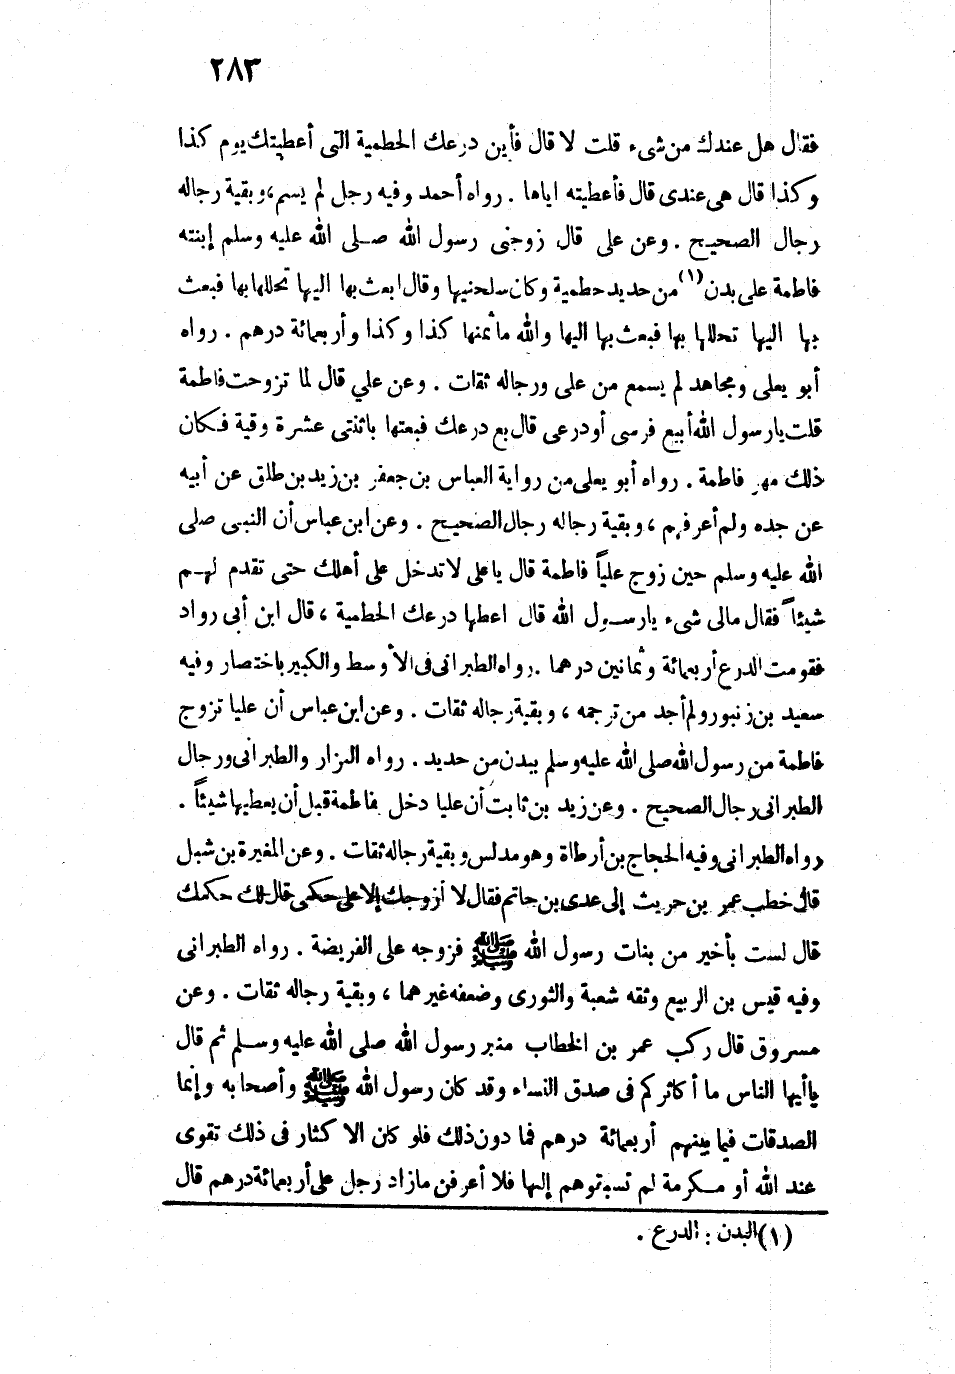 ٢٨٣
فقال هل عندك من شىء قلت لا قال فأين درعك الحطمية التى أعطيتك يوم كذا
وكذا قال هى عندى قال فأعطيته اياها . رواه أحمد وفيه رجل لم يسم، وبقية رجاله
رجال الصحيح . وعن على قال زوجنى رسول الله صلى الله عليه وسلم إبنته
فاطمة على بدن (١) من حديد حطمية وكان سلحنيها وقال ابعث بها اليها تحللها بها فبعث
بها اليها تحللها بها فبعث بها اليها والله ما ثمنها كذا وكذا وأربعمائة درهم . رواه
أبو يعلى ومجاهد لم يسمع من على ورجاله ثقات . وعن علي قال لما تزوجت فاطمة
قلت يارسول الله أبيع فرسى أودرعى قال بع درعك فبعتها باثنتى عشرة وقية فكان
ذلك مهر فاطمة . رواه أبو يعلى من رواية العباس بن جعفر بن زيد بن طلق عن أبيه
عن جده ولم أعرفهم ، وبقية رجاله رجال الصحيح . وعن ابن عباس أن النبى صلى
الله عليه وسلم حين زوج علياً فاطمة قال ياعلى لا تدخل على أهلك حتى تقدم لهم
شيئاً فقال مالى شىء يارسول الله قال اعطها درعك الحطمية ، قال ابن أبى رواد
فقومت الدرع أربعمائة وثمانين درهما . رواه الطبرانى فى الأوسط والكبير باختصار وفيه
سعيد بن زنبور ولم أجد من ترجمه ، وبقية رجاله ثقات . وعن ابن عباس أن عليا تزوج
فاطمة من رسول الله صلى الله عليه وسلم ببدن من حديد . رواه البزار والطبرانى ورجال
الطبرانى رجال الصحيح . وعن زيد بن ثابت أن عليا دخل بفاطمة قبل أن يعطيها شيئاً .
رواه الطبرانى وفيه الحجاج بن أرطاة وهو مدلس وبقية رجاله ثقات . وعن المغيرة بن شبل
قال خطب عمر بن حريث إلى عدى بن حاتم فقال لا أزوجك إلا على حكمى قال لك حكمك
قال لست بأخير من بنات رسول الله ﷺ فزوجه على الفريضة . رواه الطبرانى
وفيه قيس بن الربيع وثقه شعبة والثورى وضعفه غيرهما ، وبقية رجاله ثقات . وعن
مسروق قال ركب عمر بن الخطاب منبر رسول الله صلى الله عليه وسلم ثم قال
ياأيها الناس ما أكثاركم فى صدق النساء وقد كان رسول الله ﷺ وأصحابه وإنما
الصدقات فيما بينهم أربعمائة درهم فما دون ذلك فلو كان الاكثار فى ذلك تقوى
عند الله أو مكرمة لم تسبقوهم إليها فلا أعرفن مازاد رجل على أربعمائة درهم قال
(١) البدن : الدرع .